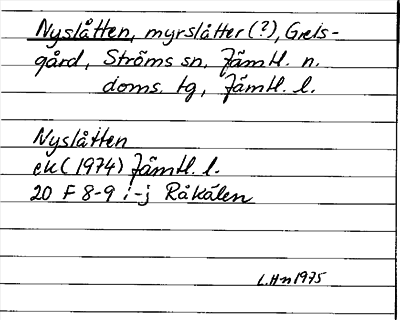 Nyslåtten, myrslåtter (?), Grels-
gård, Ströms sn, Jämtl. n.
doms. tg, Jämtl. l.
Nyslåtten
ek (1974) Jämtl. l.
20 F 8-9 i-j Råkälen
L.Hn 1975